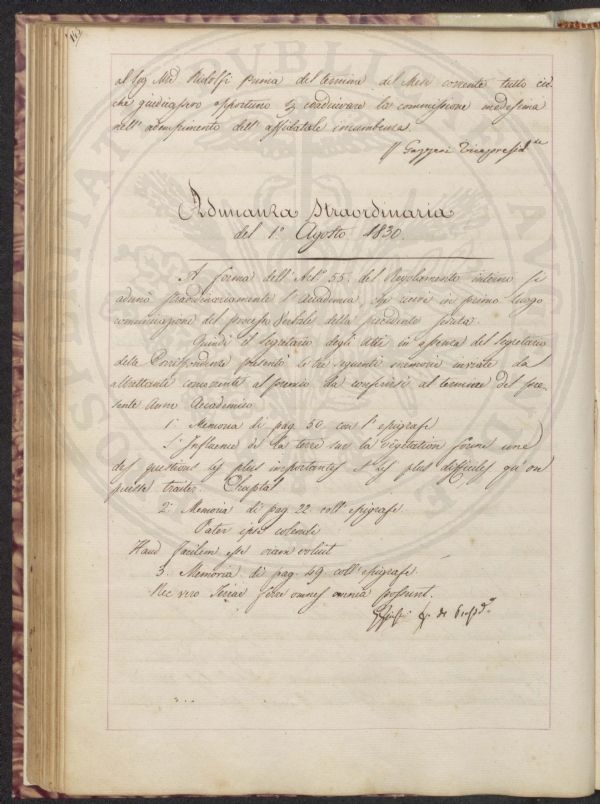 al Sig. Mse Ridolfi prima del termine del Mese corrente tutto ciò
che giudicassero opportuno a coadiuvare la commissione medesima
nell' adempimento dell' affidatale incumbenza.
Gazzeri Vicepresid.te
Adunanza Straordinaria
del 1º Agosto 1830.
A forma dell' Artº 55. del Regolamento interno si
adunò straordinariamente l' Accademia, che in primo luogo
comunicazione del processo Verbale della precedente seduta.
Quindi il segretario degli Atti in assenza del segretario
della Corrispondenza presentò le tre seguenti memorie inviate da
altrettanti concorrenti al premio da conferirsi al termine del pre-
sente Anno Accademico
1ª Memoria di pag. 50 con l' epigrafe
L' Influence de la terre sur la végétation forme une
des questions les plus importantes et les plus difficiles qu'on
puisse traiter. Chaptal
2ª Memoria di pag. 22 coll' epigrafe
Pater ipse colendi
Haud facilem esse viam voluit
3. Memoria di pag. 49 coll' epigrafe
Nec vero Terrae ferre omnes omnia possunt.